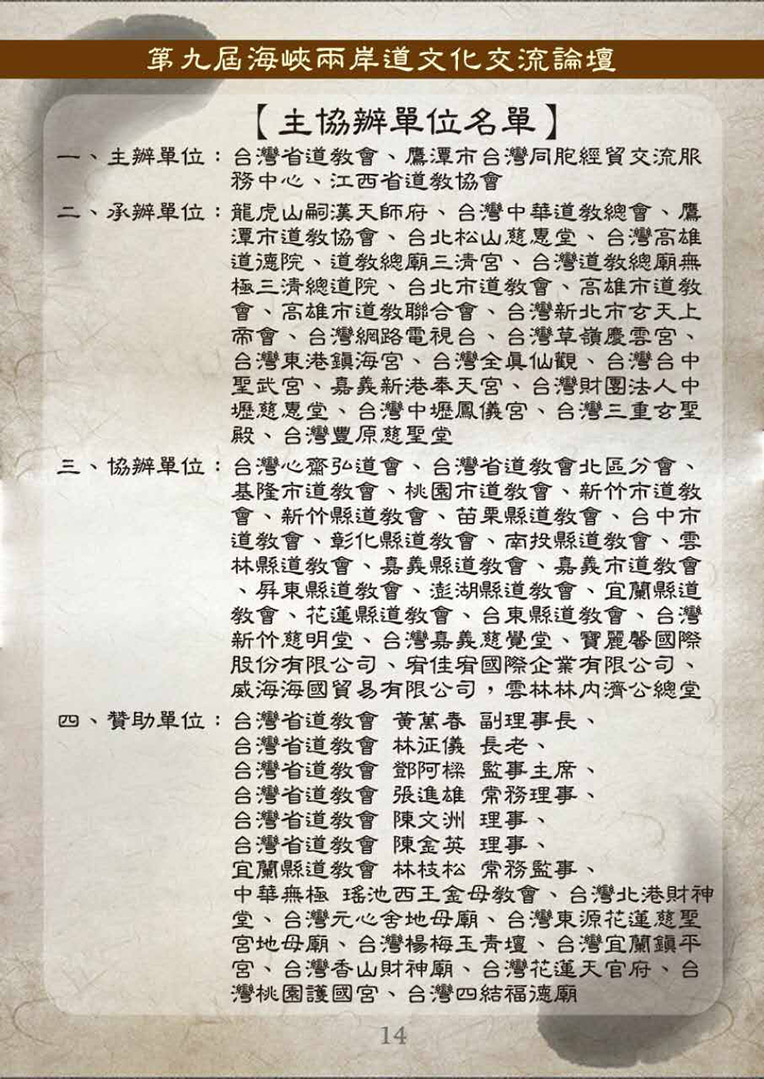 第九屆海峽兩岸道文化交流論壇
【主協辦單位名單】
一、主辦單位：台灣省道教會、鷹潭市台灣同胞經貿交流服
務中心、江西省道教協會
二、承辦單位：龍虎山嗣漢天師府、台灣中華道教總會、鷹
潭市道教協會、台北松山慈惠堂、台灣高雄
道德院、道教總廟三清宮、台灣道教總廟無
極三清總道院、台北市道教會、高雄市道教
會、高雄市道教聯合會、台灣新北市玄天上
帝會、台灣網路電視台、台灣草嶺慶雲宮、
台灣東港鎮海宮、台灣全真仙觀、台灣台中
聖武宮、嘉義新港奉天宮、台灣財團法人中
壢慈惠堂、台灣中壢鳳儀宮、台灣三重玄聖
殿、台灣豐原慈聖堂
三、協辦單位：台灣心齋弘道會、台灣省道教會北區分會、
基隆市道教會、桃園市道教會、新竹市道教
會、新竹縣道教會、苗栗縣道教會、台中市
道教會、彰化縣道教會、南投縣道教會、雲
林縣道教會、嘉義縣道教會、嘉義市道教會
、屏東縣道教會、澎湖縣道教會、宜蘭縣道
教會、花蓮縣道教會、台東縣道教會、台灣
新竹慈明堂、台灣嘉義慈覺堂、寶麗馨國際
股份有限公司、宥佳宥國際企業有限公司、
威海海國貿易有限公司，雲林林內濟公總堂
四、贊助單位：台灣省道教會 黃萬春 副理事長、
台灣省道教會 林泟儀 長老、
台灣省道教會 鄧阿樑 監事主席、
台灣省道教會 張進雄 常務理事、
台灣省道教會 陳文洲 理事、
台灣省道教會 陳金英 理事、
宜蘭縣道教會 林枝松 常務監事、
中華無極 瑤池西王金母教會、台灣北港財神
堂、台灣元心舍地母廟、台灣東源花蓮慈聖
宮地母廟、台灣楊梅玉青壇、台灣宜蘭鎮平
宮、台灣香山財神廟、台灣花蓮天官府、台
灣桃園護國宮、台灣四結福德廟
14